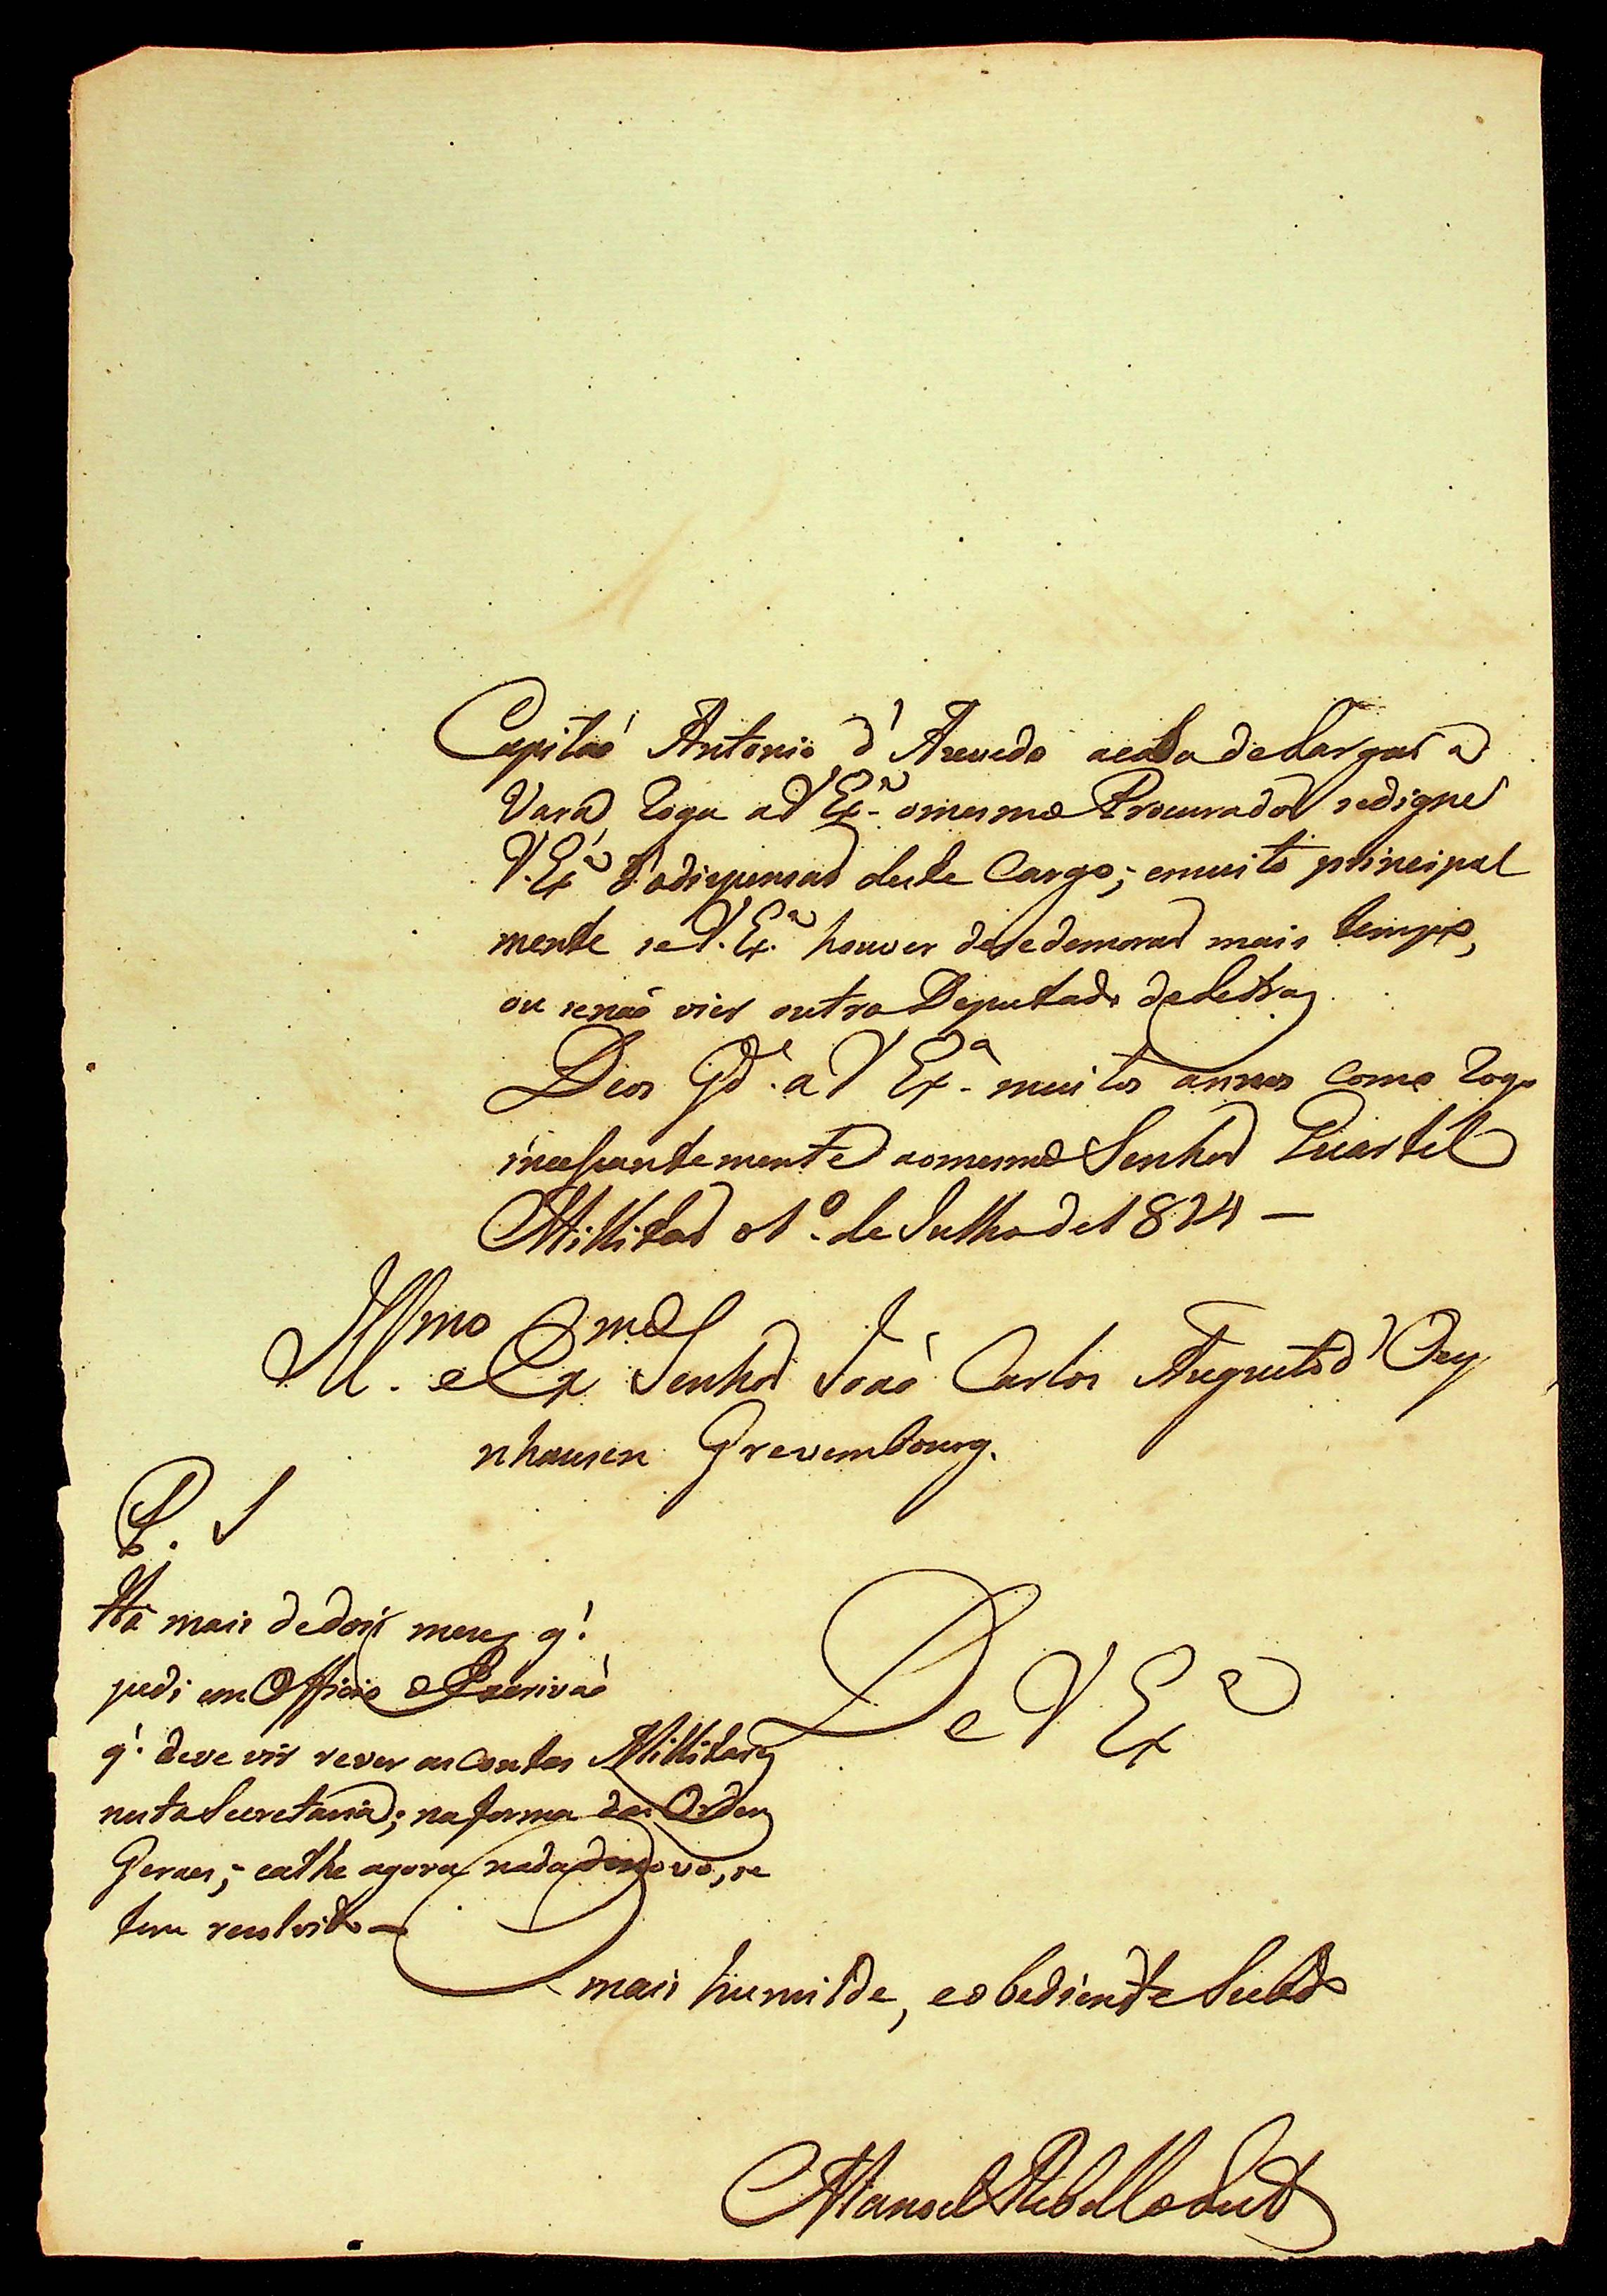 Capitaõ Antonio d'Azevedo acaba de largar a
Vara roga a V Exª o mesmo Procurador se digne
V. Exª dispensar deste Cargo; e muito principal
mente se V. Exª houver de se demorar mais tempo,
ou se naõ vier outro Deputado de Letras
Deos Gde a V Exª muitos annos como rogo
incessantemente ao mesmo Senhor Quartel
Millitar o 1º de Julho de 1814 —
Illmo e Exmo Senhor Joaõ Carlos Augusto d'Oey
nhausen Grevembourg.
P. S
Há mais de dois mezes q'
pedi em Officio o Escrivaõ
q' deve vir rever as contas Millitares
nesta Secretaria; na forma das Ordens
Geraes; e athe agora nada de novo, se
tem resolvido —
De V Exª
mais humilde, e obediente Subdo
Manoel Rebello